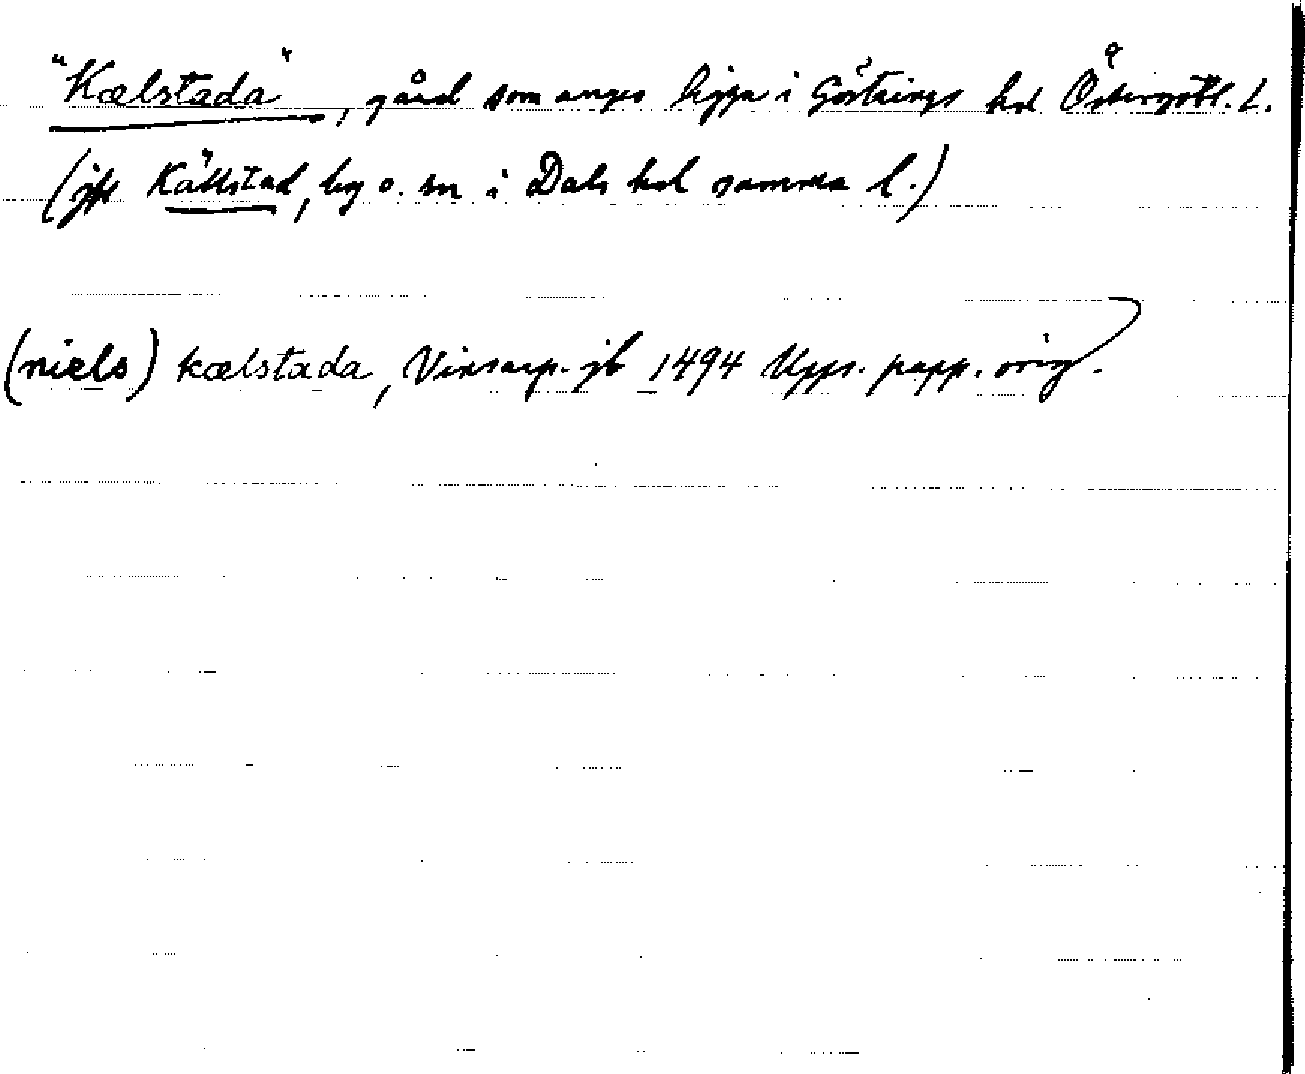 "Kælstada", gård som anges ligga i Göstrings hd Östergötl. l.
(jfr Källstad, by o. sn i Dals hd samma l.)
(niels) kælstada, Vinsarp. jb 1494 Upps. papp. orig.